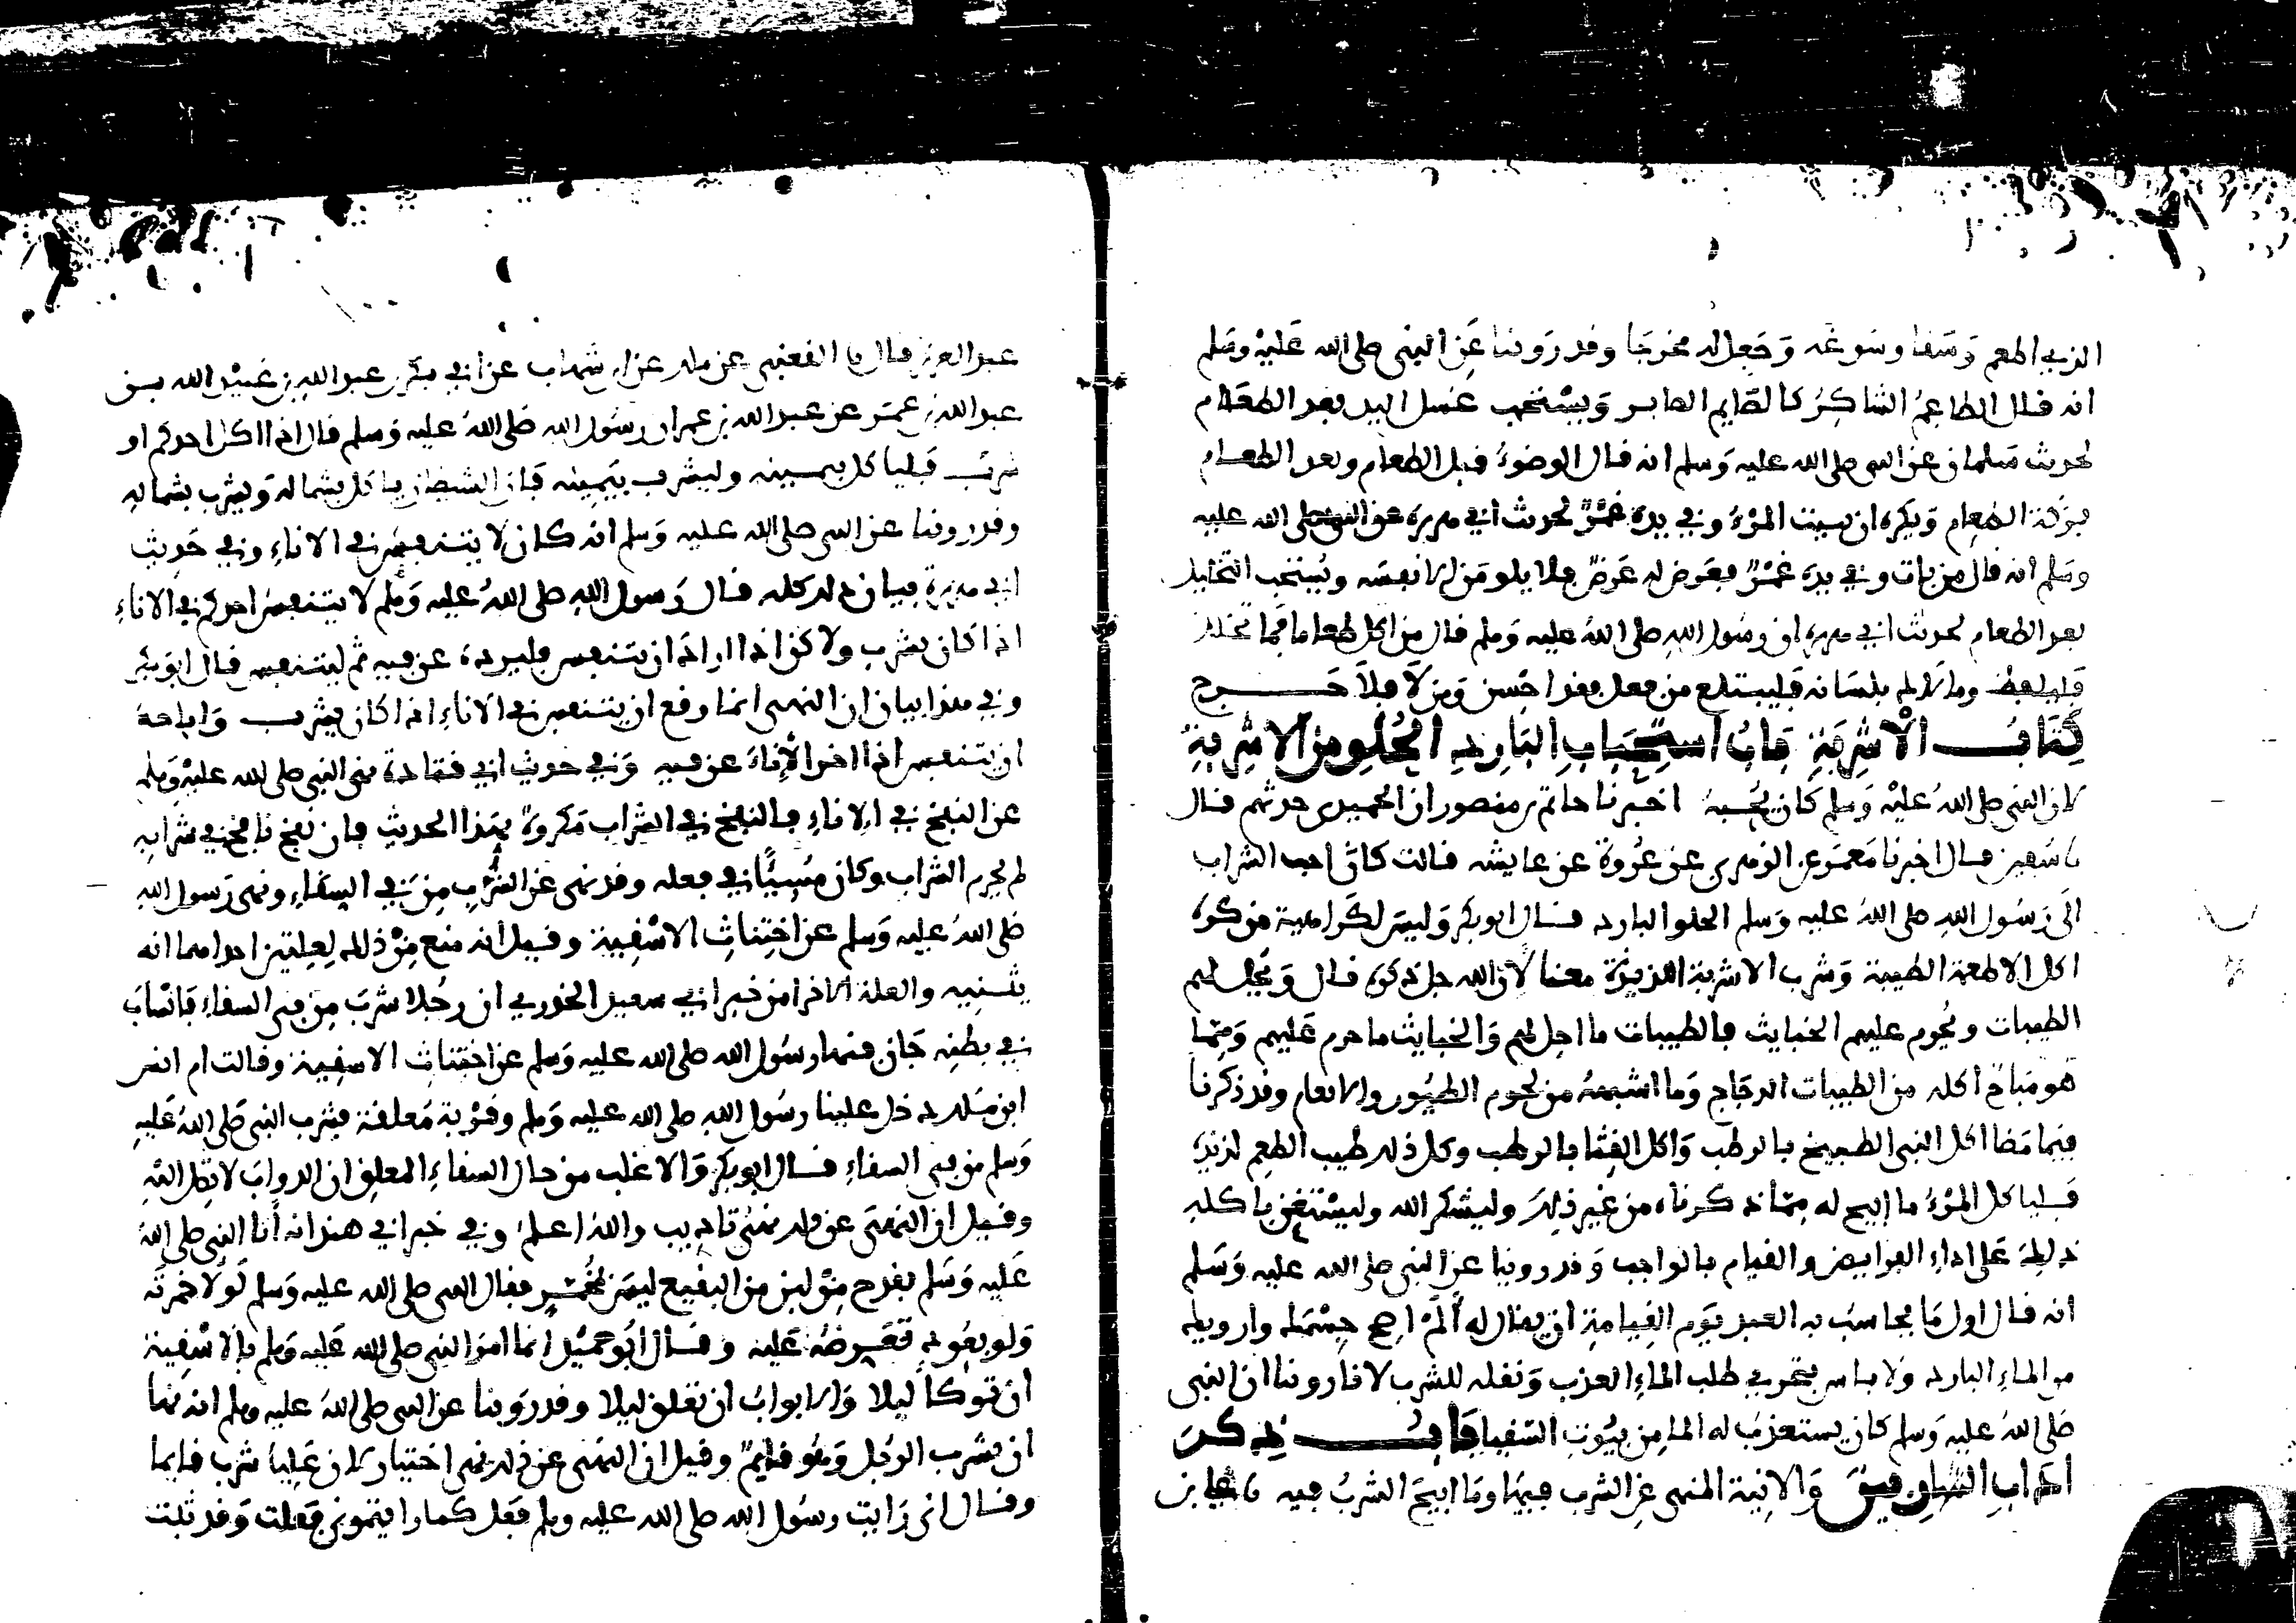 الذي اطعم وسقا وسوغه وجعل له مخرجا وقد روينا عن النبي صلى الله عليه وسلم
انه قال الطاعم الشاكر كالصايم الصابر ويستحب غسل اليد بعد الطعام
لحديث سلمان عن النبي صلى الله عليه وسلم انه قال الوضوء قبل الطعام وبعد الطعام
بركة الطعام ويكره ان يبيت المرء وفي يده غمر لحديث ابي هريرة عن النبي صلى الله عليه
وسلم انه قال من بات وفي يده غمر فعرض له عرض فلا يلومن الا نفسه ويستحب التخليل
بعد الطعام لحديث ابي هريرة ان رسول الله صلى الله عليه وسلم قال من اكل طعاما فما تخلل
فليلفظ وما لاك بلسانه فليبتلع من فعل فقد احسن ومن لا فلا حرج
كتاب الاشربة باب استحباب البارد الحلو من الاشربة
لان النبي صلى الله عليه وسلم كان يحبه اخبرنا حاتم بن منصور ان الحميدي حدثهم قال
نا سفين قال اخبرنا معمر عن الزهري عن عروة عن عايشه قالت كان احب الشراب
الى رسول الله صلى الله عليه وسلم الحلو البارد قال ابو بكر وليس لكراهية من كره
اكل الاطعمة الطيبة وشرب الاشربة اللذيذة معنا لان الله جل ذكره قال ويحل لهم
الطيبات ويحرم عليهم الخبايث فالطيبات ما احل لهم والخبايث ما حرم عليهم ومما
هو مباح اكله من الطيبات الدجاج وما اشبهه من لحوم الطيور والانعام وقد ذكرنا
فيما مضا اكل النبي الطبيخ بالرطب واكل القثا بالرطب وكل ذلك طيب الطعم لذيذ
فلياكل المرء ما ابيح له مما ذكرناه من غير ذلك وليشكر الله وليستعن باكله
ذلك على اداء الفرايض والقيام بالواجب وقد روينا عن النبي صلى الله عليه وسلم
انه قال اول ما يحاسب به العبد يوم القيامة ان يقال له الم اصح جسمك وارويك
من الماء البارد ولا باس بتحري طلب الماء العذب ونقله للشرب لانا روينا ان النبي
صلى الله عليه وسلم كان يستعذب له الما من بيوت السقيا باب ذكر
اداب الشاربين والانية المنهي عن الشرب فيها وما ابيح الشرب فيه نا علي بن
عبد العزيز قال نا القعنبي عن ملك عن ابن شهاب عن ابي بكر بن عبد الله بن عبيد الله بن
عبد الله بن عمر عن عبد الله بن عمر ان رسول الله صلى الله عليه وسلم قال اذا اكل احدكم او
شرب فلياكل بيمينه وليشرب بيمينه فان الشيطان ياكل بشماله ويشرب بشماله
وقد روينا عن النبي صلى الله عليه وسلم انه كان لا يتنفس في الاناء وفي حديث
ابي هريرة بيان ذلك كله قال رسول الله صلى الله عليه وسلم لا يتنفس احدكم في الاناء
اذا كان يشرب ولاكن اذا اراد ان يتنفس فليرده عن فيه ثم ليتنفس قال ابو بكر
وفي هذا بيان ان النهي انما وقع ان يتنفس في الاناء اذا كان يشرب واباحة
ان يتنفس اذا اخر الاناء عن فيه وفي حديث ابي قتادة نهى النبي صلى الله عليه وسلم
عن النفخ في الاناء فالنفخ في الشراب مكروه بهذا الحديث فان نفخ نافخ في شرابه
لم يحرم الشراب وكان مسيئا في فعله وقد نهى عن الشرب من في السقاء ونهى رسول الله
صلى الله عليه وسلم عن اختناث الاسقية وقيل انه منع من ذلك لعلتين احداهما انه
يثنيه والعلة الاخرا من خبر ابي سعيد الخدري ان رجلا شرب من في السقاء فانساب
في بطنه جان فنها رسول الله صلى الله عليه وسلم عن اختناث الاسقية وقالت ام انس
ابن ملك دخل علينا رسول الله صلى الله عليه وسلم وقربة معلقة فشرب النبي صلى الله عليه
وسلم من في السقاء قال ابو بكر والاغلب من حال السقاء المعلق ان الدواب لا تصل اليه
وقيل ان النهي عن ذلك نهي تاديب والله اعلم وفي خبر ابي هند انه انا النبي صلى الله
عليه وسلم بقدح من لبن من البقيع ليس بمخمر فقال النبي صلى الله عليه وسلم لولا خمرته
ولو بعود تعرضه عليه وقال ابو حميد انما امر النبي صلى الله عليه وسلم بالاسقية
ان توكا ليلا والابواب ان تغلق ليلا وقد روينا عن النبي صلى الله عليه وسلم انه نها
ان يشرب الرجل وهو قايم وقيل ان النهي عن ذلك نهي اختيار لان عليا شرب قايما
وقال اني رايت رسول الله صلى الله عليه وسلم فعل كما رايتموني فعلت وقد ثبت